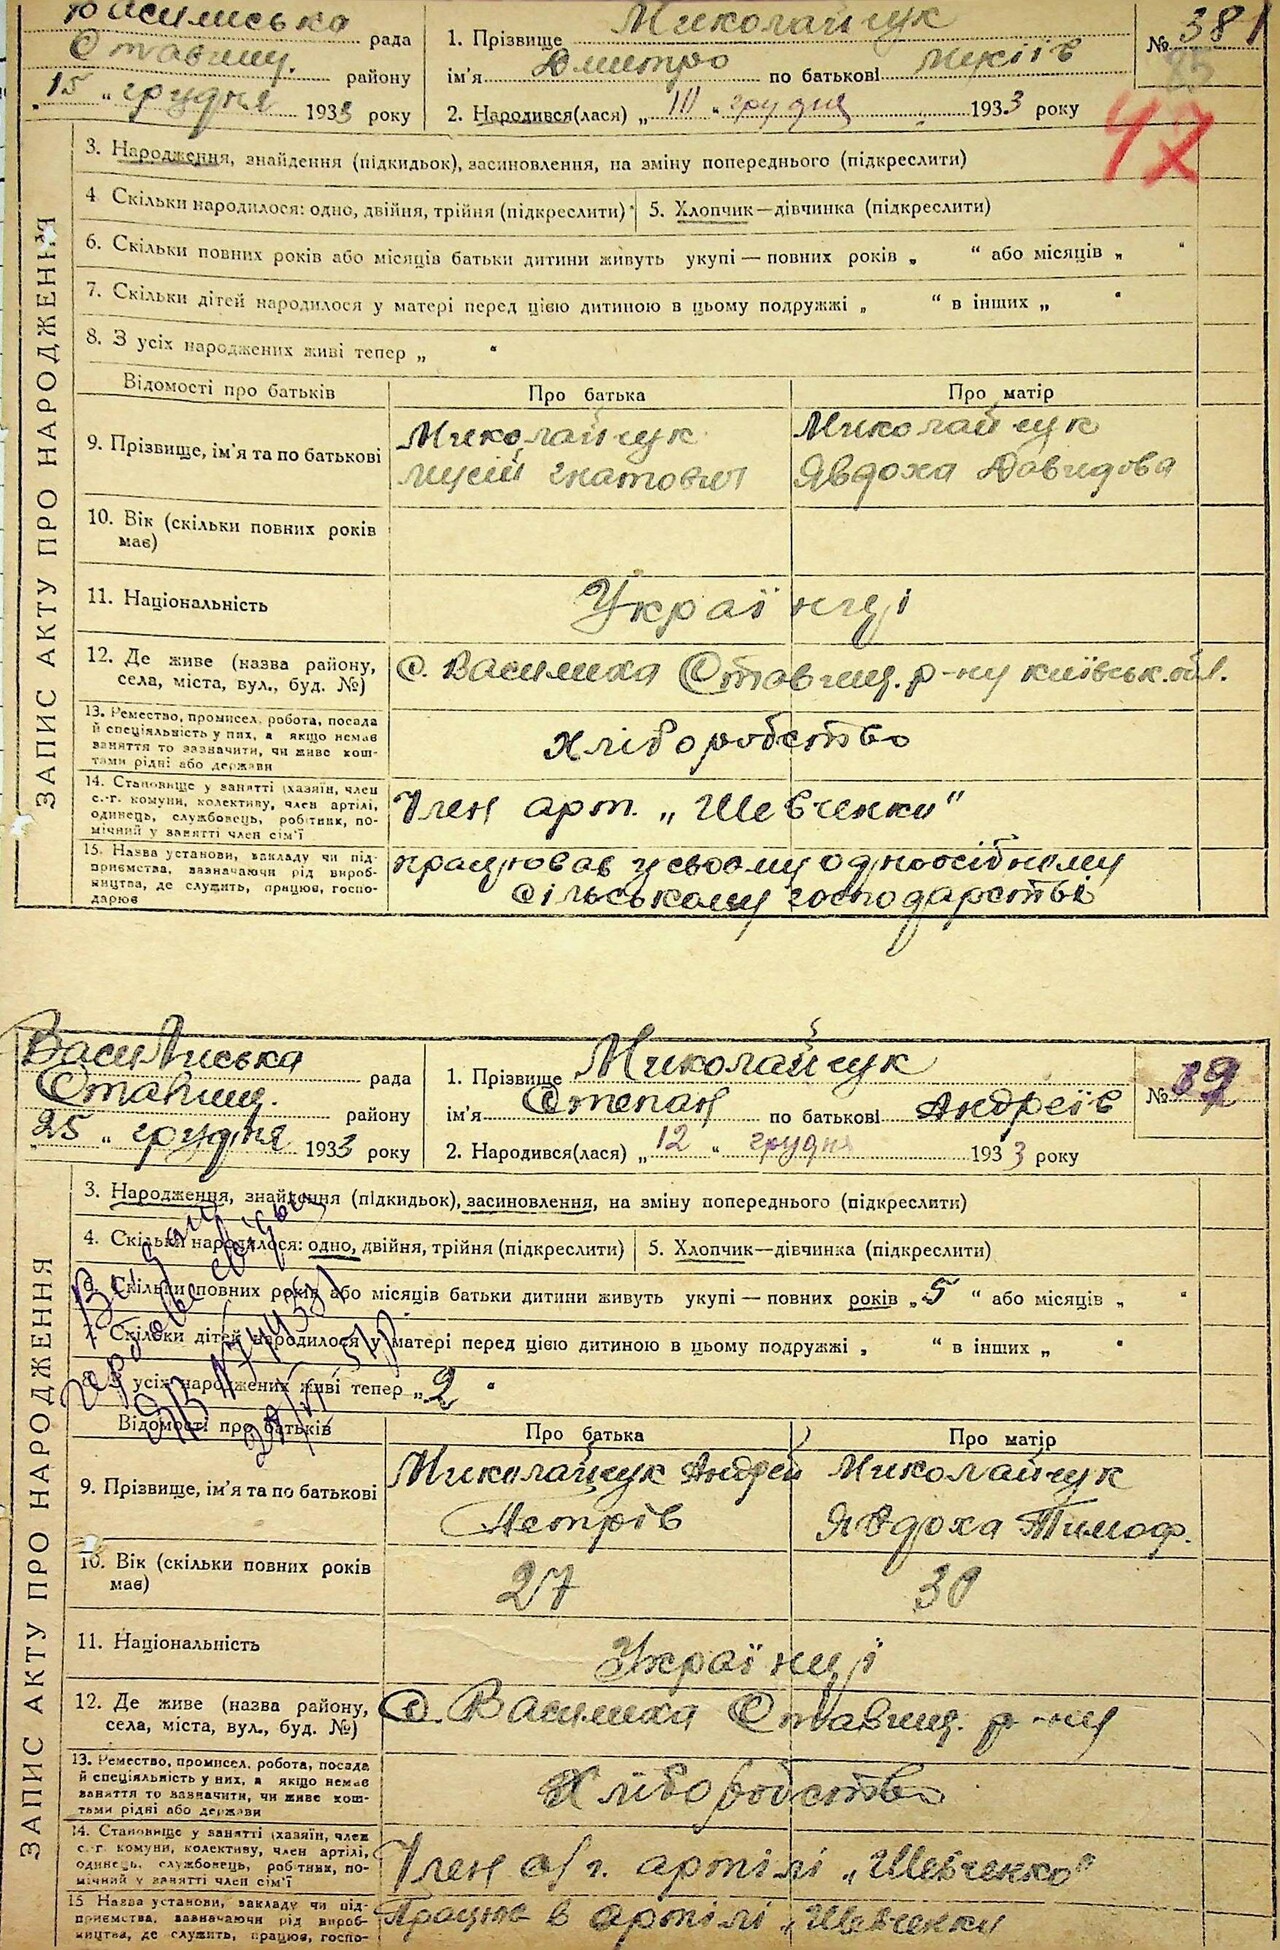 Василиська рада
Ставищ. району
„15 “ грудня 1933 року
1. Прізвище Миколайчук
ім'я Дмитро по батькові Мусіїв
2. Народився(лася) „ 10 “ грудня 1933 року
№ 381
85
47
ЗАПИС АКТУ ПРО НАРОДЖЕННЯ
3. Народження, знайдення (підкидьок), засиновлення, на зміну попереднього (підкреслити)
4 Скільки народилося: одно, двійня, трійня (підкреслити)
5. Хлопчик—дівчинка (підкреслити)
6. Скільки повних років або місяців батьки дитини живуть укупі — повних років „ “ або місяців „ “
7. Скільки дітей народилося у матері перед цією дитиною в цьому подружжі „ “ в інших „ “
8. З усіх народжених живі тепер „ “
Відомості про батьків Про батька Про матір
9. Прізвище, ім'я та по батькові
Миколайчук
Мусій Гнатович
Миколайчук
Явдоха Давидова
10. Вік (скільки повних років
має)
11. Національність Українці
12. Де живе (назва району,
села, міста, вул., буд. №)
с. Василиха Ставищ. р-ну київськ. обл.
13. Ремество, промисел, робота, посада
й спеціяльність у них, а якщо немає
заняття то зазначити, чи живе кош-
тами рідні або держави
Хліборобство
14. Становище у занятті (хазяїн, член
с.-г. комуни, колективу, член артілі,
одинець, службовець, робітник, по-
мічний у занятті член сім'ї
Член арт. „Шевченки“
15. Назва установи, закладу чи під-
приємства, зазначаючи рід вироб-
ництва, де служить, працює, госпо-
дарює
працював у своєму одноосібному
сільському господарстві
Василиська рада
Ставищ. району
„25 “ грудня 1933 року
1. Прізвище Миколайчук
ім'я Степан по батькові Андреїв
2. Народився(лася) „ 12 “ грудня 1933 року
№ 39
ЗАПИС АКТУ ПРО НАРОДЖЕННЯ
3. Народження, знайдення (підкидьок), засиновлення, на зміну попереднього (підкреслити)
4. Скільки народилося: одно, двійня, трійня (підкреслити)
5. Хлопчик—дівчинка (підкреслити)
6. Скільки повних років або місяців батьки дитини живуть укупі — повних років „ 5 “ або місяців „ “
7. Скільки дітей народилося у матері перед цією дитиною в цьому подружжі „ “ в інших „ “
8. З усіх народжених живі тепер „ 2 “
Відомості про батьків Про батька Про матір
9. Прізвище, ім'я та по батькові
Миколайчук Андрей
Петрів
Миколайчук
Явдоха Тимоф.
10. Вік (скільки повних років
має)
27 30
11. Національність Українці
12. Де живе (назва району,
села, міста, вул., буд. №)
с. Василиха Ставищ. р-ну
13. Ремество, промисел, робота, посада
й спеціяльність у них, а якщо немає
заняття то зазначити, чи живе кош-
тами рідні або держави
Хліборобство
14. Становище у занятті (хазяїн, член
с.-г. комуни, колективу, член артілі,
одинець, службовець, робітник, по-
мічний у занятті член сім'ї
Член с/г. артілі „Шевченко“
15 Назва установи, закладу чи під-
приємства, зазначаючи рід вироб-
ництва, де служить, працює, госпо-
Працює в артілі „Шевченки